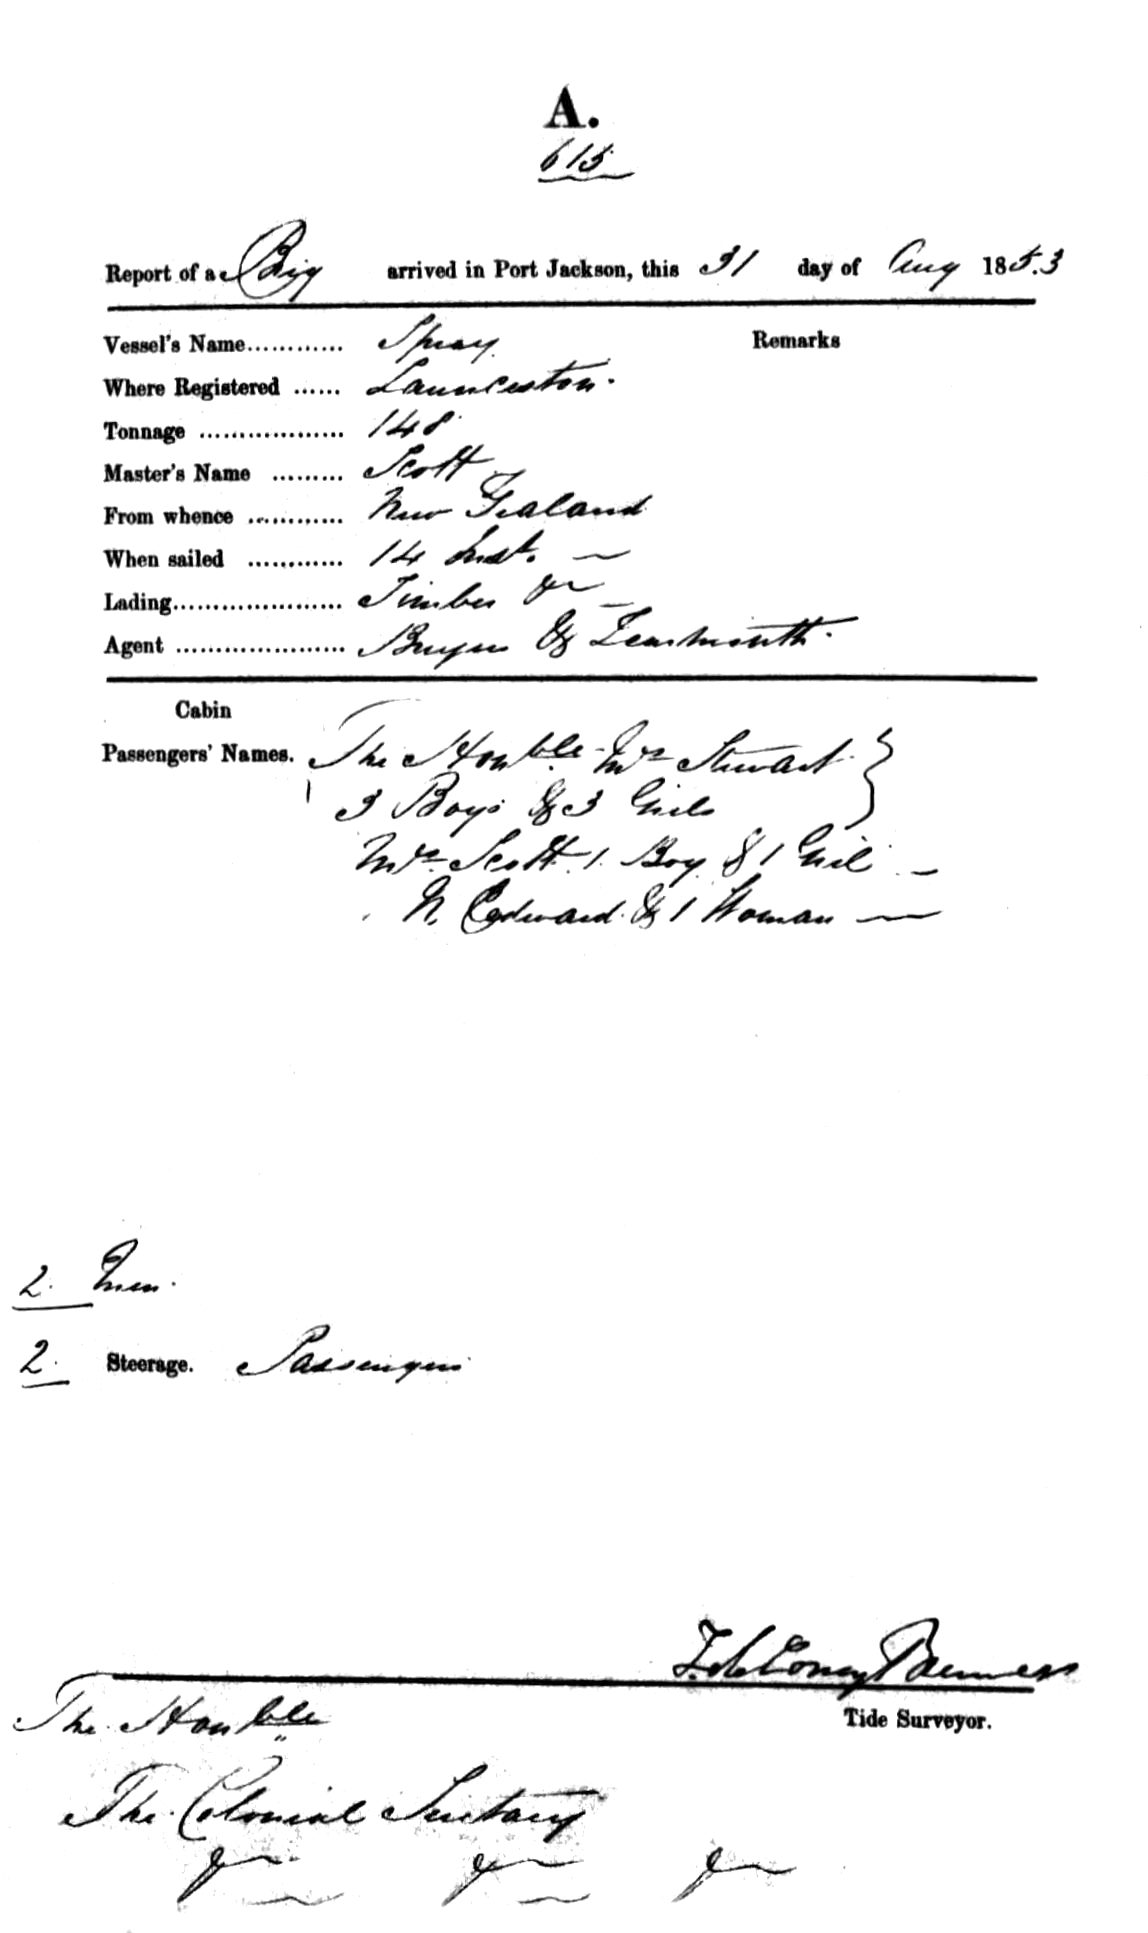 A.
615
Report of a Brig arrived in Port Jackson, this 31 day of Aug 1853
Vessel's Name............ Spray Remarks
Where Registered ...... Launceston.
Tonnage .................. 148
Master's Name ......... Scott
From whence ............ New Zealand
When sailed ............ 14 Inst.
Lading..................... Timber &c
Agent ..................... & Learmonth.
Cabin
Passengers' Names. The Honble. Mrs Stewart
3 Boys & 3 Girls
Mrs Scott 1 Boy & 1 Girl
N. Edward & 1 Woman
2. Men.
2. Steerage. Passengers
Tide Surveyor.
The Honble
The Colonial Secretary
&c &c &c